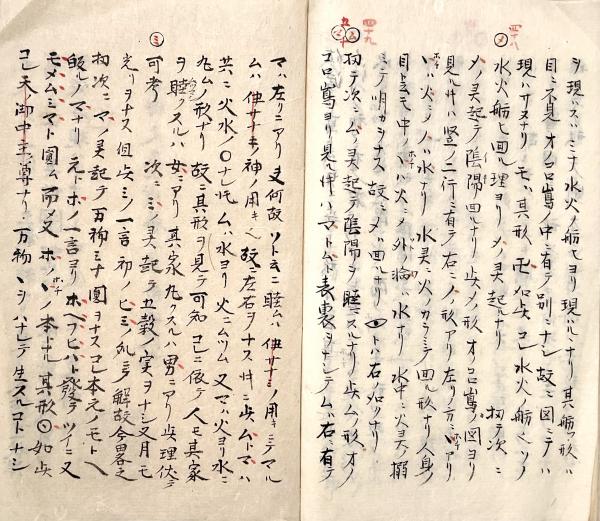 ヲ現ハスハミナ水火ノ舫ヒヨリ現ハルヽナリ其舫フ形ハ
目ニ不見オノコロ嶌ノ中ニ有テ別ニナシ故ニ図ミテハ
現ハサヌナリ モハ其形卍如此コレ水火ノ舫ヒツノ
水火舫ヒ回ル理ヨリメノ灵起ルナリ 扨テ次ニ
メノ灵起テ陰陽回ルナリ此メノ形オノコロ嶌ノ図ヨリ
見ル时ハ竪ノ一行ニ有テ右ニノノ形アリ左リノ方ニヽアリ
ヽハ火ミノノハ水ナリ水灵ニ火ノカラミテ回ル形ナリ人身
目玉モ中ノヽハ火ミノ外ノ輪ハ水ナリ水中ニ火灵搦
ミテ明カヲナス故ニメハ回ルナリ トハ右如クナリ
扨テ次ニムノ灵起テ陰陽ヲ睦ミスルナリ此ムノ形オノ
コロ嶌ヨリ見ル时ハマトムト表裏ヲナシテムハ右ニ有テ
マハ左リニアリ又何故ソト云ニ睦ムハ伊サナミノ用キミテマル
ムハ伊サナキノ神ノ用キ 故ニ左右ヲナス 此ムトマハ
共ニ火水ノ〇ナレ氏ムハ水ヨリ火ニムツム又マハ火ヨリ水ニ
九ムノ形ナリ故ニ其形ヲ見テ可知コレニ依テ人モ其家
ヲ睦クスルハ女ニアリ其家丸クスルハ男ニアリ此理伏テ
可考 次ニミノ灵起テ五穀ノ実ヲナシ又月モ
光リヲナス但此ミノ一言初ノヒミ 解故今畧之
扨次ニマノ灵起テ万物ミナ圓ヲナスコレ本元ノモトヘ
皈ルノマナリ元トホノ一言ヨリホヘヲヒハト發テツイニ又
モメムミマト圓ム而メ又ホノヽノ本ナル其形☉如此
コレ天御中主尊ナリ万物ヽヲハナレテ生スルコトナシ
ミ
メ
四十八
四十九
五十